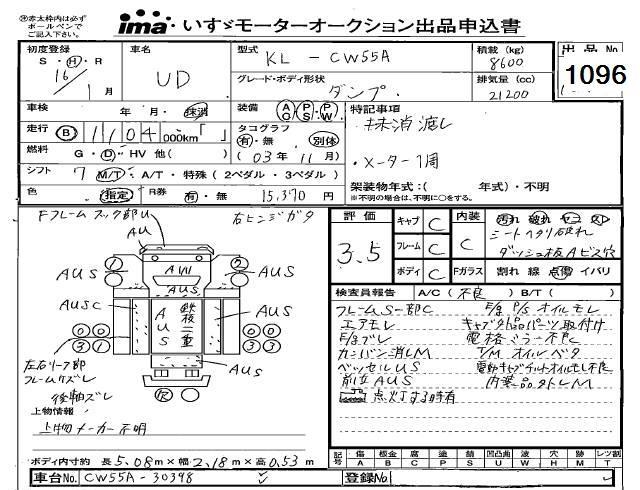 ㊟赤太枠内は必ず
ボールペンで
ご記入下さい。
ima いすゞモーターオークション出品申込書
初度登録
S・H・R
16年1月
車名
UD
型式
KL - CW55A
グレード・ボディ形状
ダンプ
積載 (kg)
8600
排気量 (cc)
21200
出品No
1096
車検 年・月・抹消
装備 AC PS PW
特記事項
抹消渡し
・メーター1周
走行 B 1104 000km「 」
タコグラフ
有・無 別体
(03年11月)
燃料 G・D・HV 他( )
シフト 7 M/T・A/T・特殊(2ペダル・3ペダル)
色 指定 R券 有・無 15,370円
架装物年式:( 年式)・不明
※不明の場合は、不明に○をする。
Fフレームフック部U
AU
右ヒンジガタ
評価
3.5
キャブ C
フレーム C
ボディ C
内装 C
Fガラス
汚れ 破れ ヤニ スレ
シートヘタリ破れ
ダッシュ板Aビス穴
割れ 線 点傷 イバリ
検査員報告 A/C(不良) B/T( )
フレームS一部C
エアモレ
E/gブレ
カンバン消しM
ベッセルUS
前立AUS
点灯する時有
E/g P/Sオイルモレ
キャブ欠品パーツ取付け
電格ミラー不良C
T/Mオイルベタ
電動キャブチルトオイルモレ不良
内装品欠トレM
AUS
AUS
AUS
AUS
AUSC
AUS
AUS
鉄板二重
AUS
左右リーフ部
フレームサズレ
後軸ズレ
上物情報
上物メーカー不明
ボディ内寸約 長5.08m×幅2.18m×高0.53m
記号 傷A 板金B 腐C 塗P 錆S 凹凸曲U 波W 穴H 跡M レツ割T
車台No. CW55A-30398
登録No.